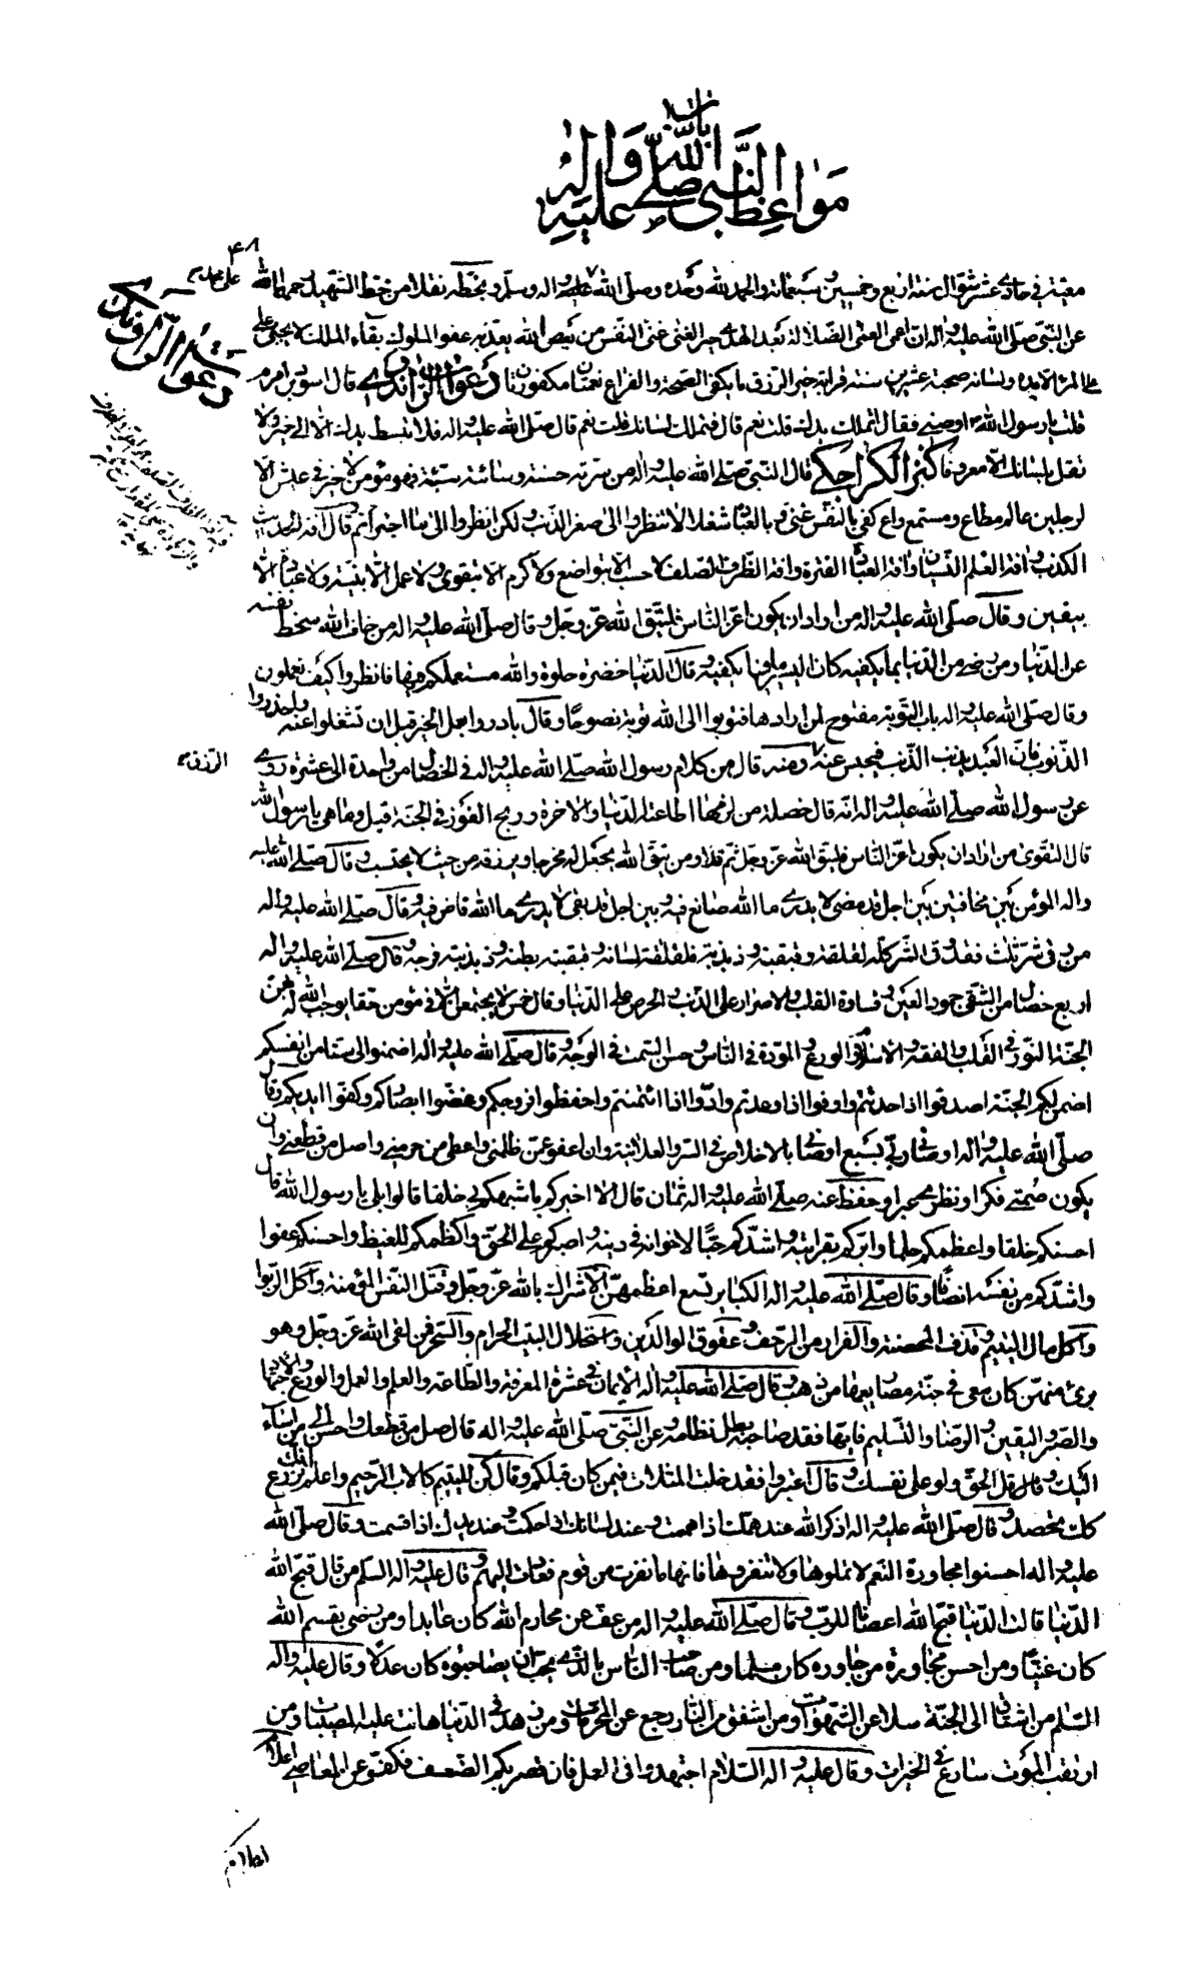 باب
مواعظ النبي صلى الله عليه واله
۴۸
معية في حادي عشر شوال سنة اربع وخمسين وسبعمائة والحمد لله وحده وصلى الله على واله وسلم وبخطه نقلا من خط الشهيد رحمهما الله
عن النبي صلى الله عليه واله ان اعمى العمى الضلالة بعد الهدى خير الغنى غنى النفس من يعص الله يعذبه عفو الملوك بقاء الملك لا يجني على
على المرء الا يده ولسانه صحبة عشرين سنة قرابة خير الرزق ما يكفي الصحة والفراغ نعمتان مكفورتان دعوات الراوندي قال اسود بن اصرم
قلت يا رسول الله اوصني فقال اتملك يدك قلت نعم قال فتملك لسانك قلت نعم قال صلى الله عليه واله فلا تبسط يدك الا الى خير ولا
تقل بلسانك الا معروفا كنز الكراجكي قال النبي صلى الله عليه واله من سرته حسنة وسائته سيئة فهو مؤمن لا خير في عيش الا
لرجلين عالم مطاع ومستمع واع كفى بالنفس غنى وبالعبادة شغلا لا تنظروا الى صغر الذنب ولكن انظروا الى من اجترأتم وقال آفة الحديث
الكذب وافة العلم النسيان وافة العبادة الفترة وافة الظرف الصلف لا حسب الا بتواضع ولا كرم الا بتقوى ولا عمل الا بنية ولا عبادة الا
بيقين وقال صلى الله عليه واله من اراد ان يكون اعز الناس فليتق الله عز وجل وقال صلى الله عليه واله من خاف الله سخط نفسه
عن الدنيا ومن رضي من الدنيا بما يكفيه كان ايسر ما فيها يكفيه وقال الدنيا خضرة حلوة والله مستعملكم فيها فانظروا كيف تعملون
وقال صلى الله عليه واله باب التوبة مفتوح لمن ارادها فتوبوا الى الله توبة نصوحا وقال بادروا بعمل الخير قبل ان تشغلوا عنه واحذروا
الذنوب فان العبد يذنب الذنب فيحبس عنه ومنه قال من كلام رسول الله صلى الله عليه واله في الخصال من واحدة الى عشرة روي
الرزق
عن رسول الله صلى الله عليه واله انه قال خصلة من لزمها اطاعته الدنيا والاخرة وربح الفوز في الجنة قيل وما هي يا رسول الله
قال التقوى من اراد ان يكون اعز الناس فليتق الله عز وجل ثم تلا ومن يتق الله يجعل له مخرجا ويرزقه من حيث لا يحتسب وقال صلى الله عليه
واله المؤمن بين مخافتين بين اجل قد مضى لا يدري ما الله صانع فيه وبين اجل قد بقي لا يدري ما الله قاض فيه وقال صلى الله عليه واله
من وقي شر ثلث فقد وقي الشر كله لقلقه وقبقبه وذبذبه فلقلقه لسانه وقبقبه بطنه وذبذبه فرجه وقال صلى الله عليه واله
اربع خصال من الشقى جمود العين وقساوة القلب والاصرار على الذنب والحرص على الدنيا وقال خمس لا يجتمعن الا في مؤمن حقا يوجب الله له بهن
الجنة النور في القلب والفقه في الاسلام والورع والمودة في الناس وحسن السمت في الوجه وقال صلى الله عليه واله اضمنوا لي ستا من انفسكم
اضمن لكم الجنة اصدقوا اذا حدثتم واوفوا اذا وعدتم وادوا اذا ائتمنتم واحفظوا فروجكم وغضوا ابصاركم وكفوا ايديكم وقال
صلى الله عليه واله اوصاني ربي بسبع اوصاني بالاخلاص في السر والعلانية وان اعفو عمن ظلمني واعطي من حرمني واصل من قطعني وان
يكون صمتي فكرا ونظري عبرا وحفظ عنه صلى الله عليه واله ثمان قال الا اخبركم باشبهكم بي خلقا قالوا بلى يا رسول الله قال
احسنكم خلقا واعظمكم حلما وابركم بقرابته واشدكم حبا لاخوانه في دينه واصبركم على الحق واكظمكم للغيظ واحسنكم عفوا
واشدكم من نفسه انصافا وقال صلى الله عليه واله الكبائر تسع اعظمهن الاشراك بالله عز وجل وقتل النفس المؤمنة واكل الربوا
واكل مال اليتيم وقذف المحصنة والفرار من الزحف وعقوق الوالدين واستحلال البيت الحرام والسحر فمن لقي الله عز وجل وهو
بريء منهن كان معي في جنة مصاريعها من ذهب وقال صلى الله عليه واله الايمان في عشرة المعرفة والطاعة والعلم والعمل والورع والاجتهاد
والصبر واليقين والرضا والتسليم فايها فقد صاحبه بطل نظامه وعن النبي صلى الله عليه واله قال صل من قطعك واحسن الى من اساء
اليك وقل الحق ولو على نفسك وقال اعتبروا فقد خلت المثلات فيمن كان قبلكم وقال كن لليتيم كالاب الرحيم واعلم انك تزرع
كذلك تحصد وقال صلى الله عليه واله اذكر الله عند همك اذا هممت وعند لسانك اذا حكمت وعند يدك اذا قسمت وقال صلى الله
عليه واله احسنوا مجاورة النعم لا تملوها ولا تنفروها فانها ما نفرت من قوم فعادت اليهم وقال عليه واله السلم من قال قبح الله
الدنيا قالت الدنيا قبح الله اعصانا للرب وقال صلى الله عليه واله من عف عن محارم الله كان عابدا ومن رضي بقسم الله
كان غنيا ومن احسن مجاورة من جاوره كان مسلما ومن صاحب الناس بالذي يحب ان يصاحبوه كان عدلا وقال عليه واله
السلم من اشتاق الى الجنة سلا عن الشهوات ومن اشفق من النار رجع عن المحرمات ومن زهد في الدنيا هانت عليه المصيبات ومن
ارتقب الموت سارع في الخيرات وقال عليه واله السلام اجتهدوا في العمل فان قصر بكم الضعف فكفوا عن المعاصي